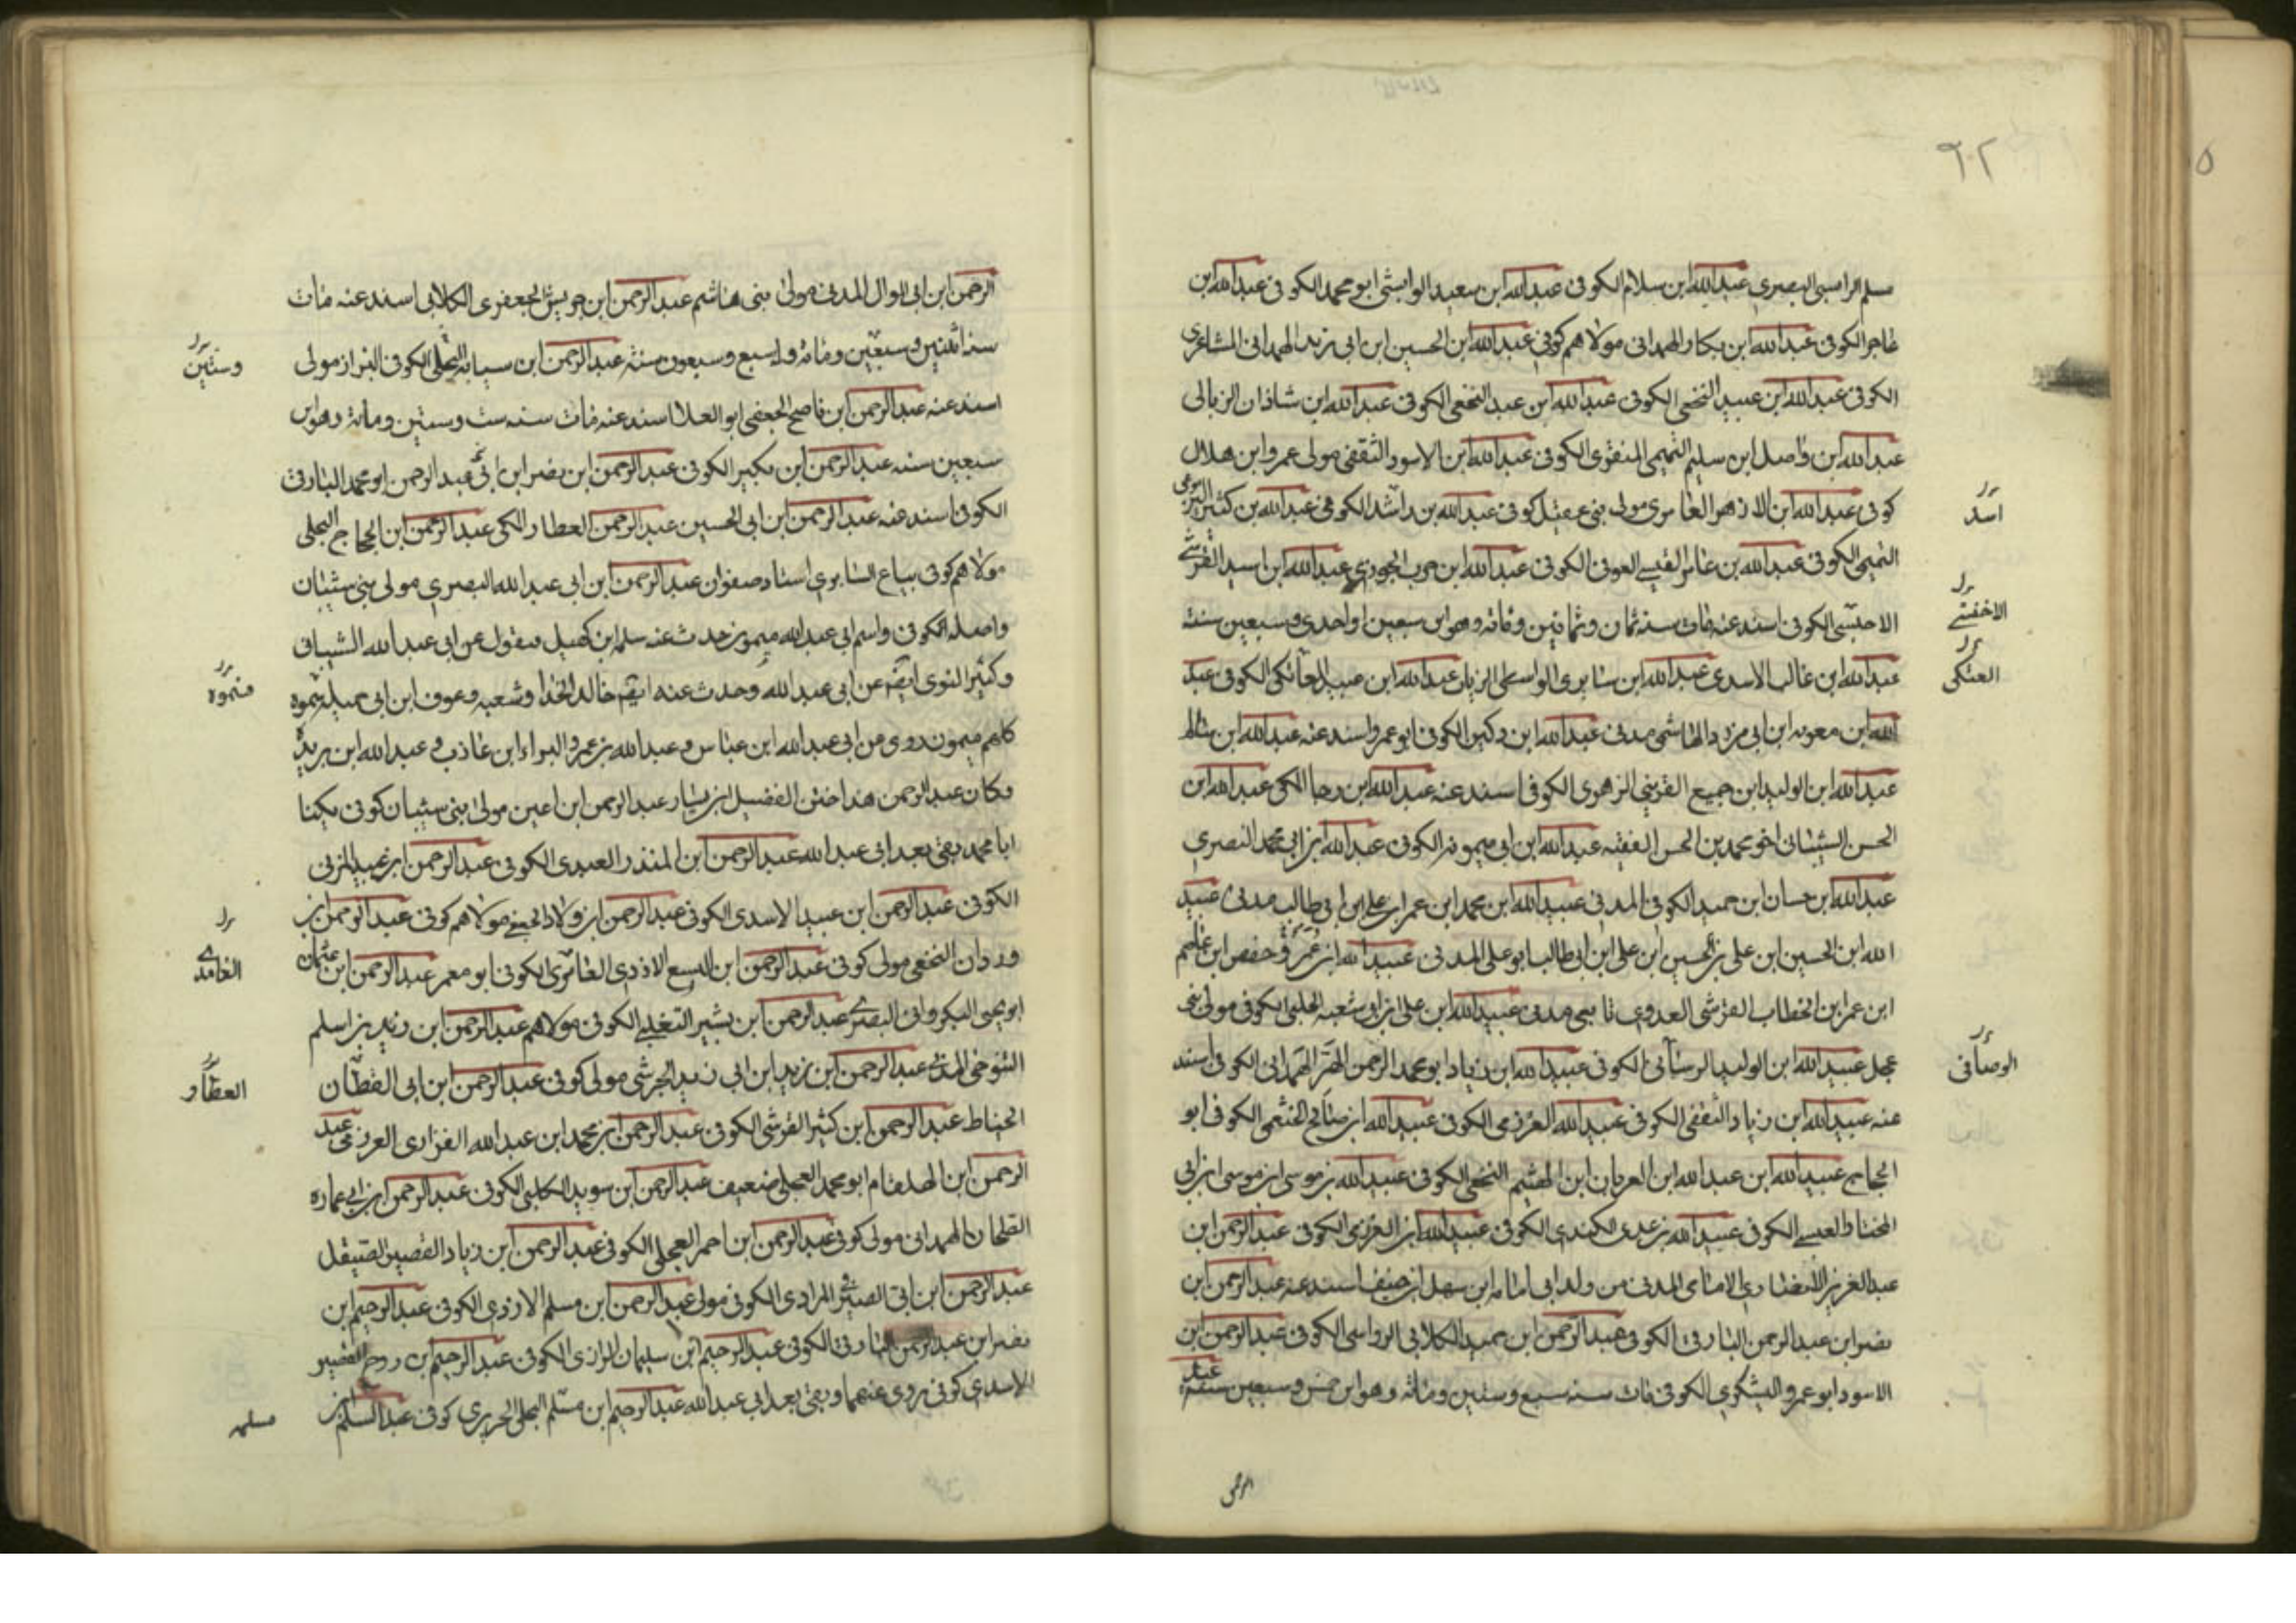 ٦٢
مسلم الراسبى البصرى عبد الله ابن سلام الكوفى عبد الله ابن سعيد الوابشى ابو محمد الكوفى عبد الله ابن
الكوفى عبد الله ابن بكار الهمدانى مولاهم كوفى عبد الله ابن الحسين ابن ابى يزيد الهمدانى المشاعرى
الكوفى عبد الله ابن عبيد النخعى الكوفى عبد الله ابن عبد النخعى الكوفى عبد الله ابن شاذان الزبالى
عبد الله ابن واصل ابن سليم التميمى المنقرى الكوفى عبد الله ابن الاسود الثقفى مولى عمرو ابن هلال
كوفى عبد الله ابن الازهر العامرى مولى بنى عقيل كوفى عبد الله بن راشد الكوفى عبد الله بن كثير
اسد
التميمى الكوفى عبد الله بن عامر القيسى العوفى الكوفى عبد الله ابن حرب الجوزى عبد الله ابن اسيد القرشى
الكوفى اسند عنه مات سنه ثمان وثمانين ومائه وهو ابن سبعين او احدى وسبعين سنة
عبد الله ابن غالب الاسدى عبد الله ابن سابرى الواسطى الزيات عبد الله ابن عبيد الكوفى عبد
العتكى
الله ابن معويه ابن ابى مزرد الهاشمى مدنى عبد الله ابن دكين الكوفى ابو عمرو اسند عنه عبد الله ابن
عبد الله ابن الوليد ابن جميع القرشى الزهرى الكوفى اسند عنه عبد الله ابن رجا المكى عبد الله ابن
الحسن الشيبانى اخو محمد بن الحسن الفقيه عبد الله ابن ابى ميمونه الكوفى عبد الله ابن ابى محمد البصرى
عبد الله ابن حسان ابن حميد الكوفى المدنى عبيد الله ابن محمد ابن عمر ابن على ابن ابى طالب مدنى عبيد
الله ابن الحسين ابن على بن الحسين ابن على ابن ابى طالب ابو على المدنى عبيد الله ابن عمر حفص ابن عاصم
ابن عمر ابن الخطاب القرشى العدوى تابعى مدنى عبيد الله ابن على ابن ابى شعبه الحلبى الكوفى مولى بنى
عجل عبيد الله ابن الوليد الكوفى عبيد الله ابن زياد ابو عبد الرحمن الهمدانى الكوفى اسند
الوصافى
عنه عبيد الله ابن زياد الثقفى الكوفى عبيد الله العرزمى الكوفى عبيد الله ابن صالح الخثعمى الكوفى ابو
الحجاج عبيد الله ابن عبد الله ابن العريان ابن الهيثم النخعى الكوفى عبيد الله بن موسى ابن موسى ابن ابى
المختار العبسى الكوفى عبيد الله بن عدى الكندى الكوفى عبيد الله ابن الكوفى عبد الرحمن ابن
عبد العزيز الانصارى الامامى المدنى من ولد ابى امامه ابن سهل ابن حنيف اسند عنه عبد الرحمن ابن
نصر ابن عبد الرحمن البارقى الكوفى عبد الرحمن ابن حميد الكلابى الرواسى الكوفى عبد الرحمن ابن
الاسود ابو عمرو اليشكرى الكوفى مات سنه سبع وستين ومائه وهو ابن خمس وسبعين سنة عبد
الرحمن
الرحمن ابن ابى الموال المدنى مولى بنى هاشم عبد الرحمن ابن الجعفرى الكلابى اسند عنه مات
سنه اثنين وسبعين ومائه وله سبع وسبعون سنه عبد الرحمن ابن سيابه البجلى الكوفى البزاز مولى
وستين
اسند عنه عبد الرحمن ابن ناصح الجعفى ابو العلا اسند عنه مات سنه ست وستين ومائة وهو ابن
سبعين سنه عبد الرحمن ابن بكير الكوفى عبد الرحمن ابن نصر ابن عبد الرحمن ابو محمد البارقى
الكوفى اسند عنه عبد الرحمن ابن ابى الحسين عبد الرحمن العطار المكى عبد الرحمن ابن الحجاج البجلى
مولاهم كوفى بياع السابرى استاد صفوان عبد الرحمن ابن ابى عبد الله البصرى مولى بنى شيبان
واصله الكوفى واسم ابى عبد الله ميمون حدث عنه سلمه ابن كهيل فيقول عن ابى عبد الله الشيبانى
وكثير النوى ايضا عن ابى عبد الله وحدث عنه ايضا خالد الحذا وشعبه وعوف ابن ابى جميله
كلهم ميمون روى عن ابى عبد الله ابن عباس وعبد الله بن عمر والبراء ابن عازب وعبد الله ابن بريده
وكان عبد الرحمن هذا ختن الفضيل ابن يسار عبد الرحمن ابن اعين مولى بنى شيبان كوفى يكنا
ابا محمد بقى بعد ابى عبد الله عبد الرحمن ابن المنذر العبدى الكوفى عبد الرحمن ابن عبيد المزنى
الكوفى عبد الرحمن ابن عبيد الاسدى الكوفى عبد الرحمن ابن مولاهم كوفى عبد الرحمن ابن
وردان النخعى مولى كوفى عبد الرحمن ابن اليسع الازدى الكوفى ابو معمر عبد الرحمن ابن عثمان
الغامدى
ابو يحيى البكراوى البصرى عبد الرحمن ابن بشير التغلبى الكوفى مولاهم عبد الرحمن ابن زيد بن اسلم
التنوخى المدنى عبد الرحمن ابن يزيد ابن ابى زيد الجرشى مولى كوفى عبد الرحمن ابن ابى القطان
العطار
الحناط عبد الرحمن ابن كثير القرشى الكوفى عبد الرحمن ابن محمد ابن عبد الله الفزارى العرزمى عبد
الرحمن ابن الهلقام ابو محمد العجلى ضعيف عبد الرحمن ابن سويد الكلبى الكوفى عبد الرحمن ابن ابى عماره
الطحان الهمدانى مولى كوفى عبد الرحمن ابن احمر العجلى الكوفى عبد الرحمن ابن زياد القصير الصيقل
عبد الرحمن ابن ابى المرادى الكوفى مولى عبد الرحمن ابن مسلم الازدى الكوفى عبد الرحيم ابن
نصر ابن عبد الرحمن البارقى الكوفى عبد الرحيم ابن سليمان الرازى الكوفى عبد الرحيم ابن روح القصير
الاسدى كوفى روى عنهما وبقى بعد ابى عبد الله عبد الرحيم ابن مسلم البجلى الجريرى كوفى عبد السلام ابن
مسلمه